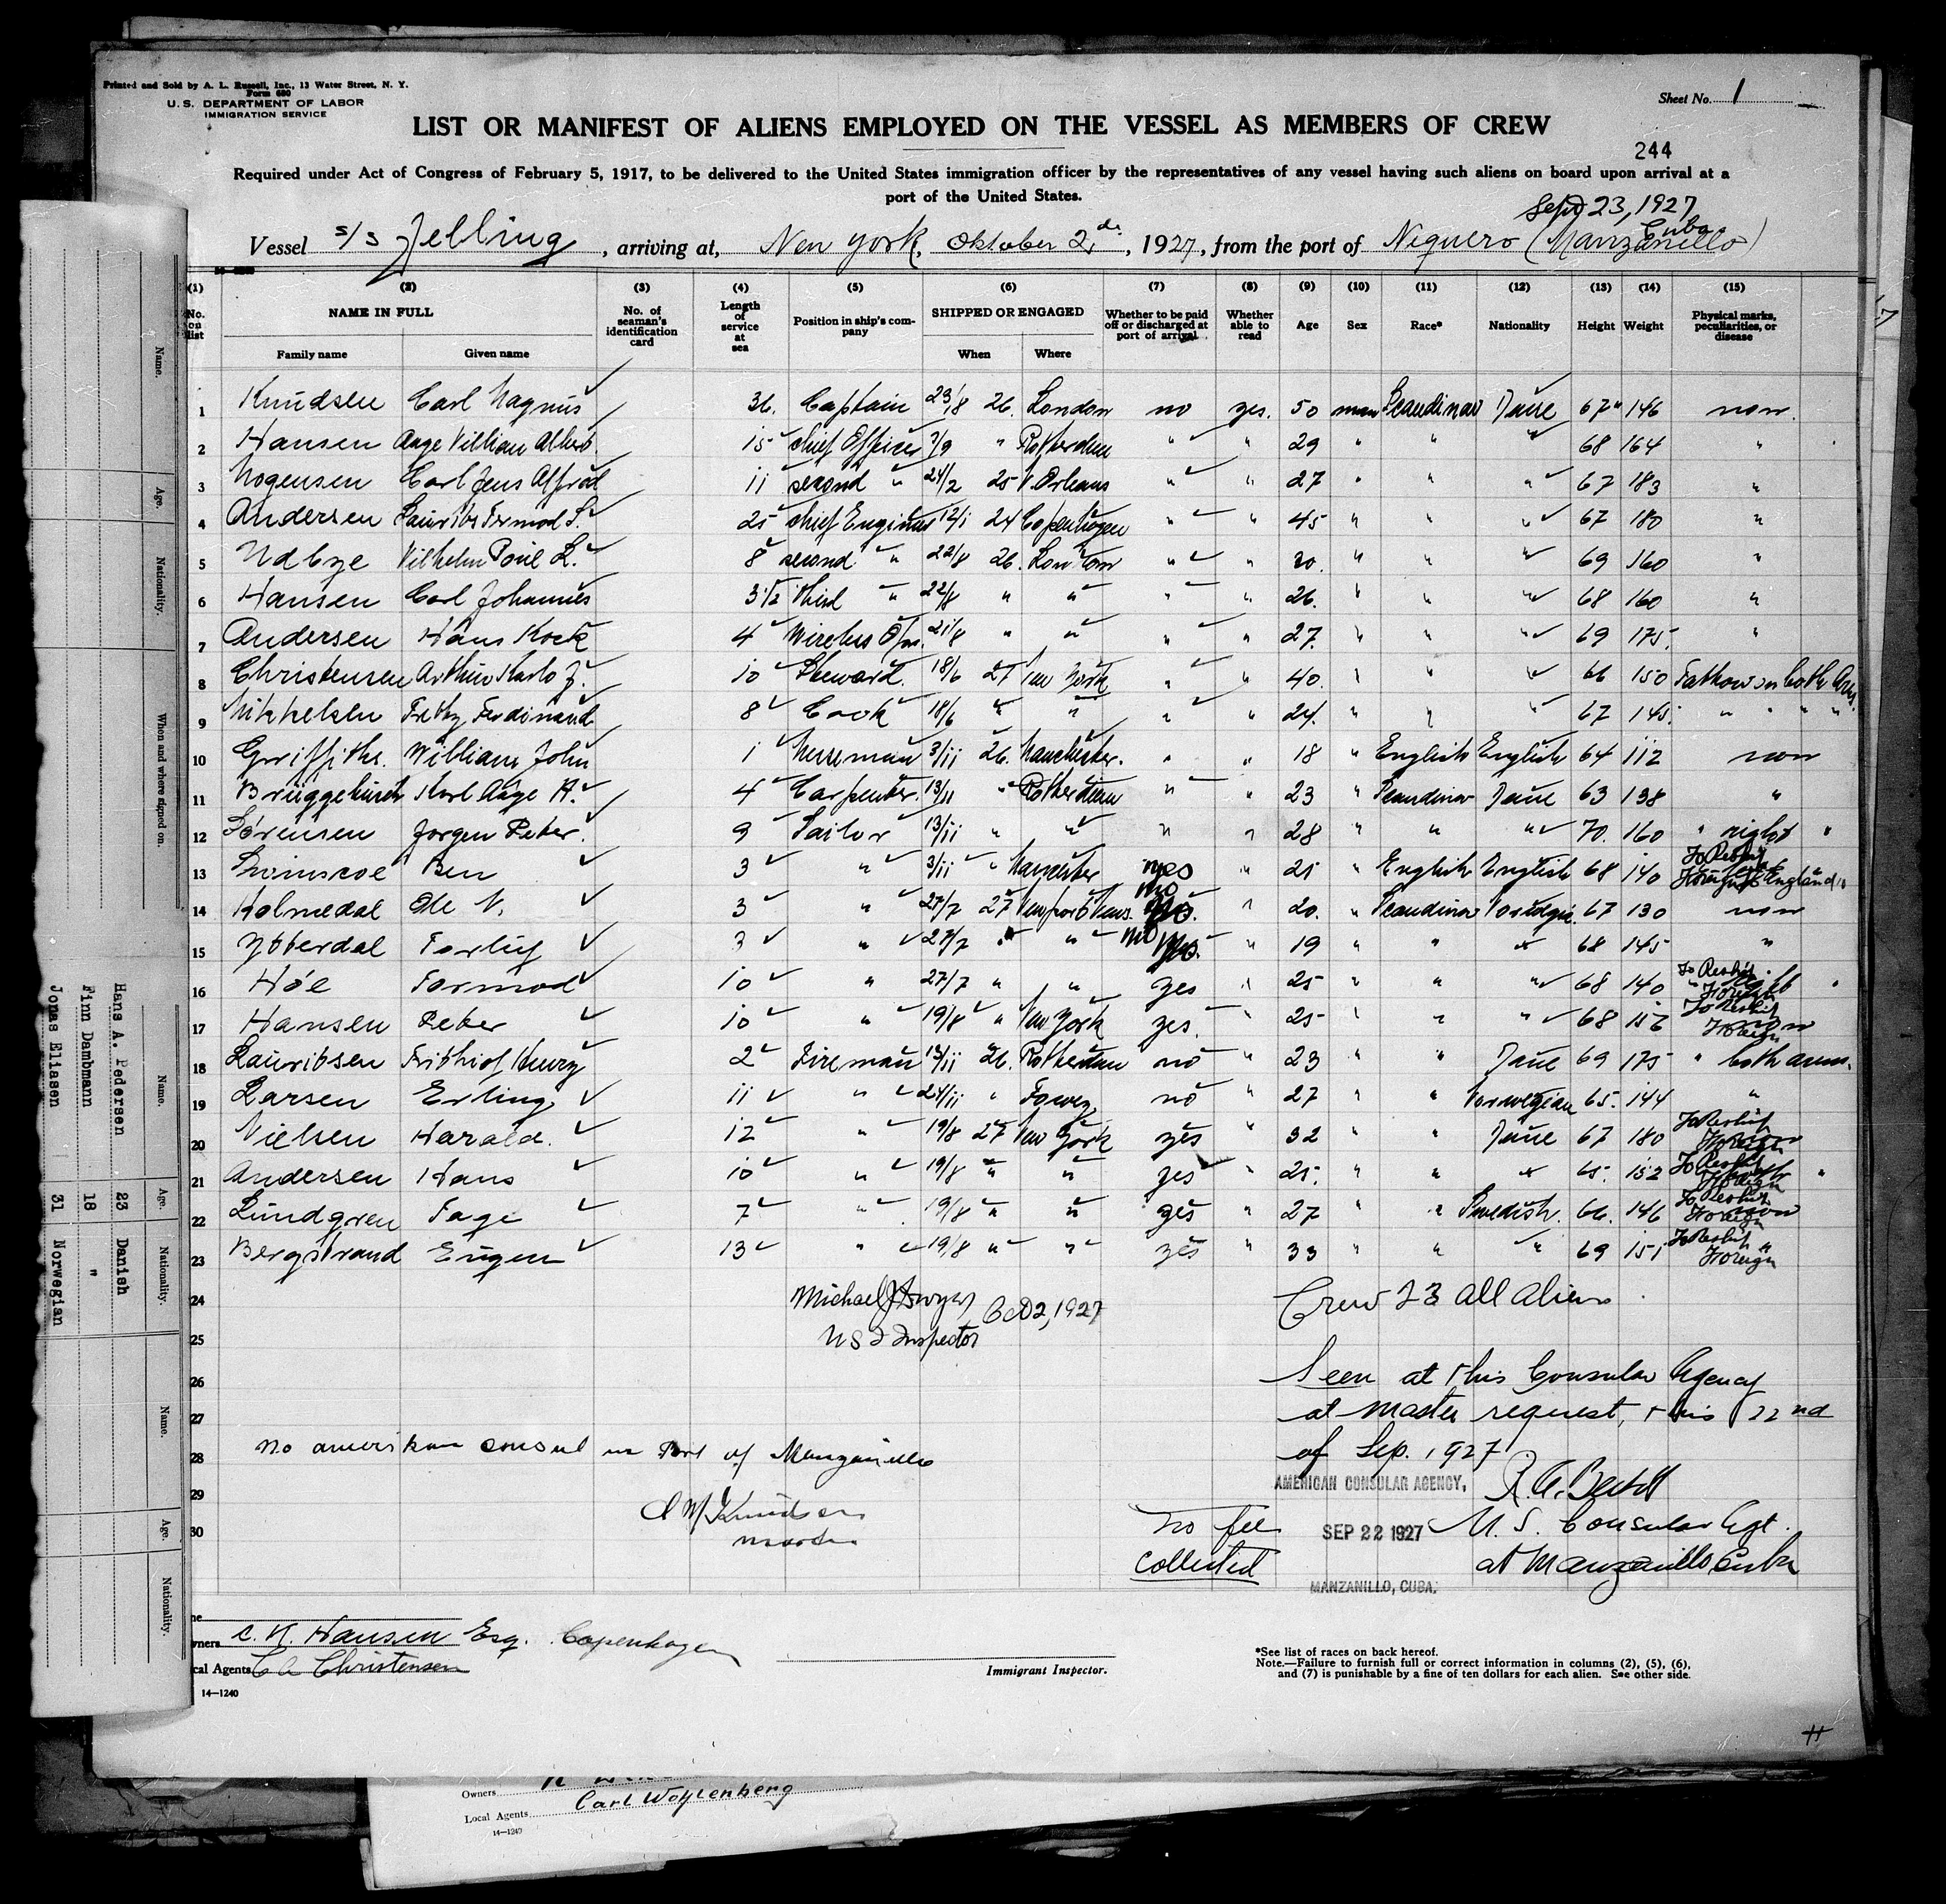 Printed and Sold by A. L. Russell, Inc., 13 Water Street, N. Y.
Form 680
U. S. DEPARTMENT OF LABOR
IMMIGRATION SERVICE
Sheet No. 1
LIST OR MANIFEST OF ALIENS EMPLOYED ON THE VESSEL AS MEMBERS OF CREW
244
Required under Act of Congress of February 5, 1917, to be delivered to the United States immigration officer by the representatives of any vessel having such aliens on board upon arrival at a
port of the United States.
Sept 23, 1927
Vessel s/s Jelling, arriving at, New York, Oktober 2, 1927, from the port of Niquero (Manzanillo) Cuba
(1) (2) (3) (4) (5) (6) (7) (8) (9) (10) (11) (12) (13) (14) (15)
No. on list NAME IN FULL No. of seaman's identification card Length of service at sea Position in ship's company SHIPPED OR ENGAGED Whether to be paid off or discharged at port of arrival Whether able to read Age Sex Race* Nationality Height Weight Physical marks, peculiarities, or disease
Family name Given name When Where
1 Knudsen Carl Magnus 36. Captain 23/8 26. London no yes. 50 man Scandinav Dane 67" 146 non.
2 Hansen Aage Villiam Albert. 15 chief Officer 7/9 " Rotterdam " " 29 " " " 68 164 "
3 Mogensen Carl Jens Alfred 11 second " 24/2 25 N. Orleans " " 27 " " " 67 183 "
4 Andersen Laurits Tormod S. 25 chief Engineer 12/1 24 Copenhagen " " 45 " " " 67 180 "
5 Udbye Vilhelm Poul L. 8 second " 22/8 26. London " " 30. " " " 69 160 "
6 Hansen Carl Johannes 3 1/2 third " 22/8 " " " " 26. " " " 68 160 "
7 Andersen Hans Kock 4 Wireless Opr. 21/8 " " " " 27. " " " 69 175. "
8 Christensen Arthur Karlo J. 10 Steward. 18/6 27 New York " " 40. " " " 66 150 Tattow on both Arms.
9 Mikkelsen Fritz Ferdinand 8 Cook 18/6 " " " " 24. " " " 67 145. " " " "
10 Griffiths. William John 1 Messman 3/11 26. Manchester. " " 18 " English English 64 112 non
11 Brüggehurst Karl Aage H. 4 Carpenter. 13/11 " Rotterdam " " 23 " Scandinav Dane 63 138 "
12 Sørensen Jørgen Peter. 9 Sailor 13/11 " " " " 28 " " " 70. 160 " right "
13 Ben 3 " 3/11 " Manchester yes " 21 " English English 68 140 To Reship Foreign England
14 Holmedal Ole N. 3 " 27/7 27 Newport News. no " 20. " Scandinav Norwegia. 67 130 non
15 Ytterdal Torleif 3 " 27/7 " " no " 19 " " " 68 145 "
16 Høl Tormod 10 " 27/7 " " yes " 25 " " " 68 140 To Reship Foreign
17 Hansen Peter 10 " 19/8 " New York yes. " 25 " " " 68 156 To Reship Foreign
18 Lauritsen Frithiof Henry 2 Fireman 13/11 26. Rotterdam no " 23 " " Dane 69 175 " both arms.
19 Larsen Erling 11 " 24/11 " Fowey no " 27 " " Norwegian 65. 144 "
20 Nielsen Harald. 12 " 19/8 27 New York yes " 32 " " Dane 67 180 To Reship Foreign
21 Andersen Hans 10 " 19/8 " " yes " 25. " " " 65. 152 To Reship Foreign "
22 Lundgren Tage 7 " 19/8 " " yes " 27 " " Swedish. 66. 146 To Reship Foreign
23 Bergstrand Eugen 13 " 19/8 " " yes " 33 " " " 69 151 To Reship Foreign "
24 Michael J Dwyer Oct 2, 1927 Crew 23 all aliens
25 U S I Inspector
26 Seen at this Consular Agency
27 at master request, this 22nd
28 no amerikan consul in Port of Manzanillo of Sep. 1927
29 AMERICAN CONSULAR AGENCY,
C M Knudsen
30 master
no fee SEP 22 1927 U. S. Consular Agt.
collected at Manzanillo Cuba
MANZANILLO, CUBA.
Owners C. K. Hansen Esq. Copenhagen
Local Agents C A Christensen
Immigrant Inspector.
14—1240
*See list of races on back hereof.
Note.—Failure to furnish full or correct information in columns (2), (5), (6),
and (7) is punishable by a fine of ten dollars for each alien. See other side.
Name. Age. Nationality. When and where signed on.
Name. Age. Nationality. Name. Age. Nationality.
Hans A. Pedersen 23 Danish
Finn Dambmann 18 "
Jonas Eliassen 31 Norwegian
Owners
Local Agents Carl Wohlenberg
14—1240